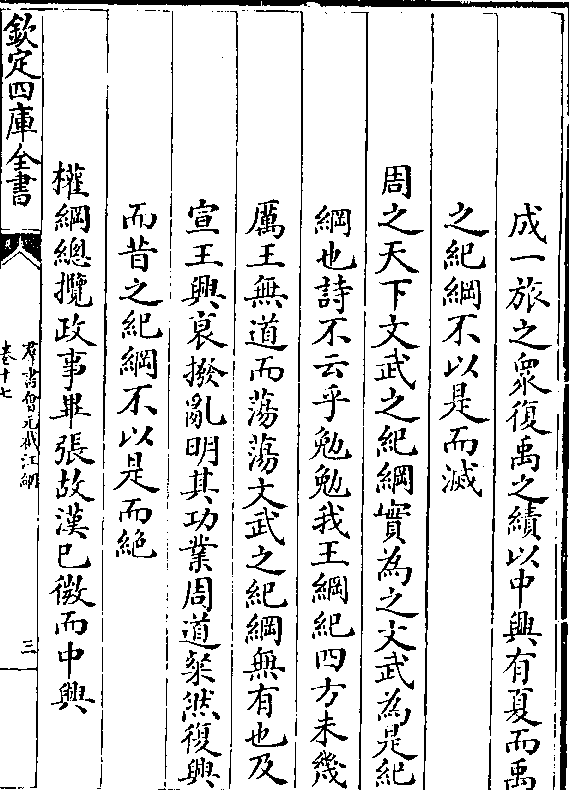 成一旅之衆復禹之績以中興有夏而禹
之紀綱不以是而滅
周之天下文武之紀綱實為之文武為是紀
綱也詩不云乎勉勉我王綱紀四方未幾
厲王無道而蕩蕩文武之紀綱無有也及
宣王興衰撥亂明其功業周道粲然復興
而昔之紀綱不以是而絶
權綱總攬政事畢張故漢已微而中興
欽定四庫全書
羣書會元截江網
卷十七
三